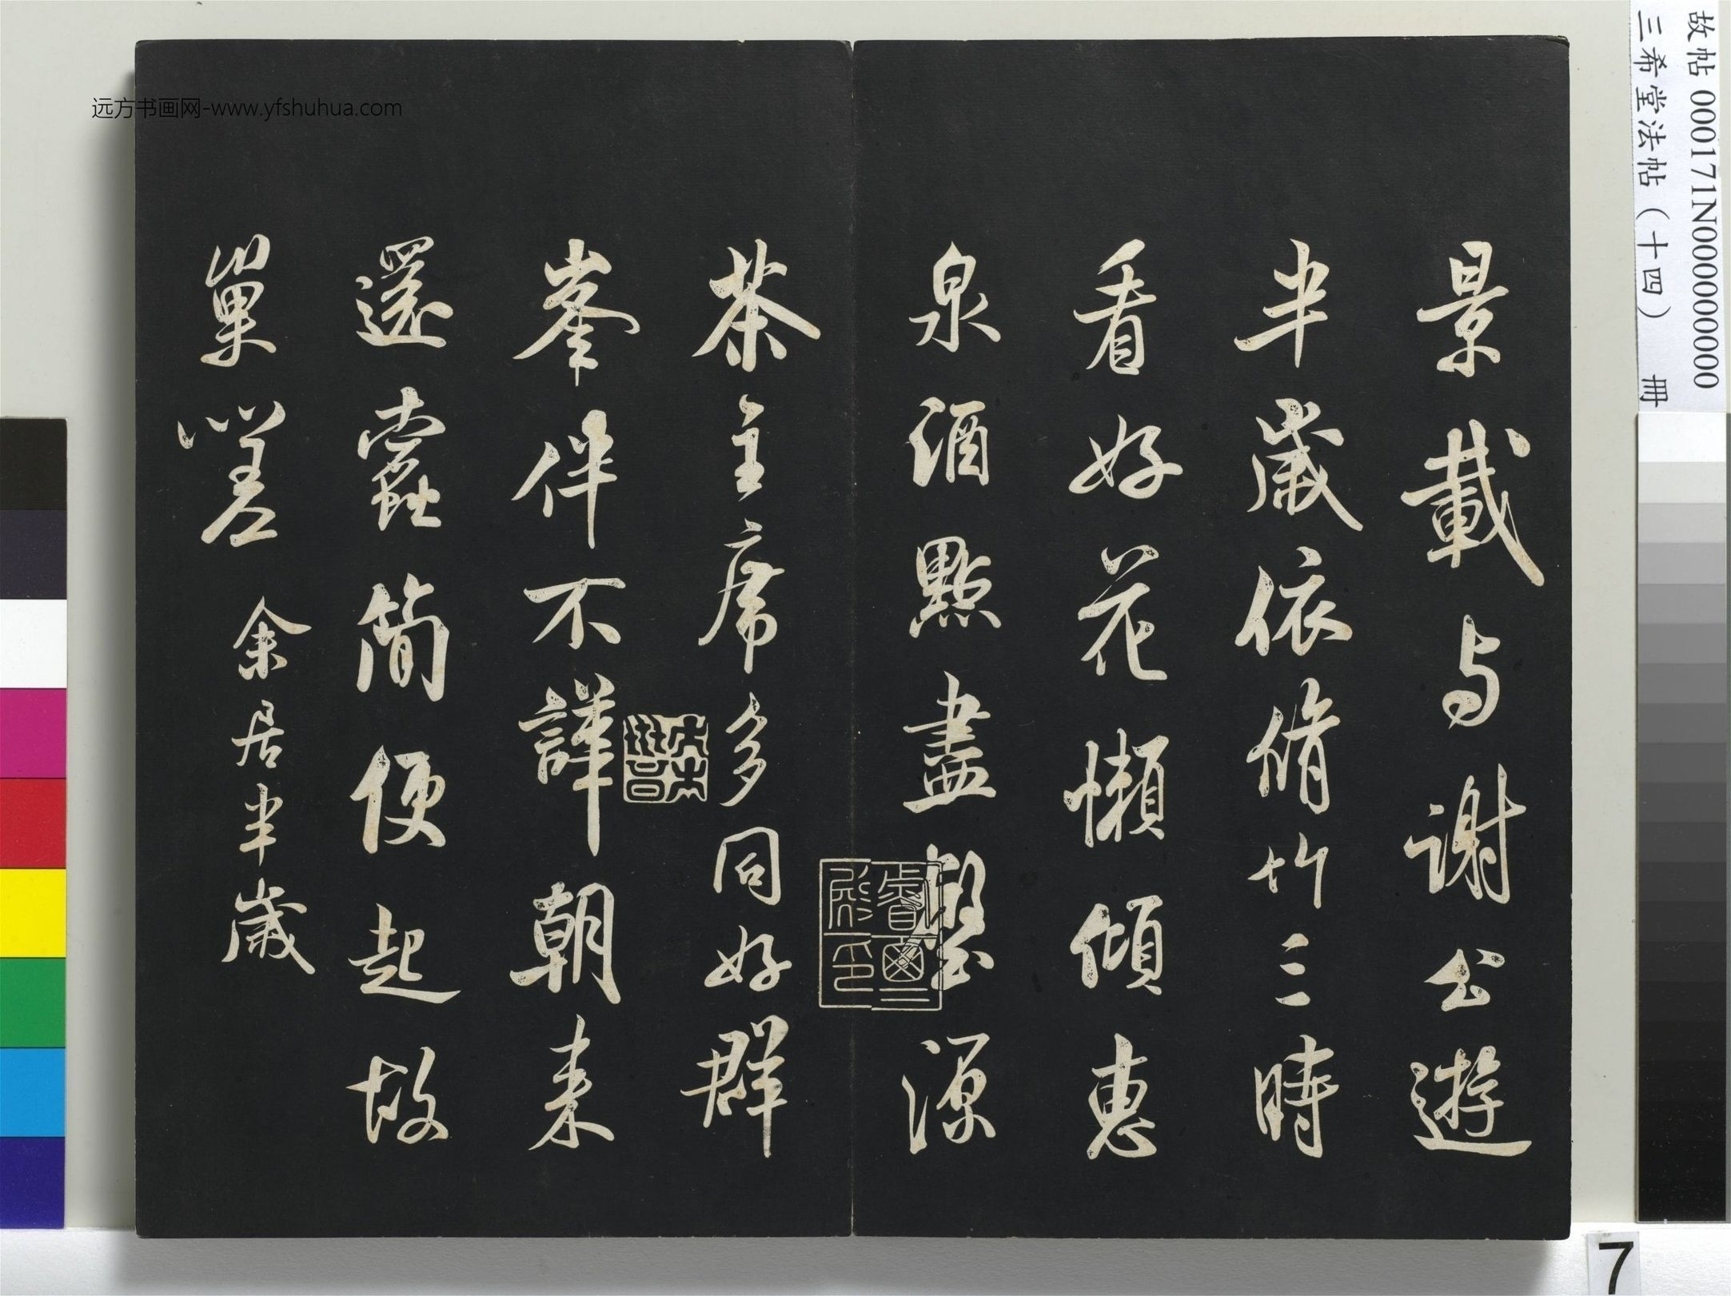 景載与謝公遊
半歲依脩竹三時
看好花懶傾惠
泉酒點盡壑源
茶主席多同好群
峯伴不譁朝来
還蠹簡便起故
巢嗟 余居半歲
远方书画网-www.yfshuhua.com
故帖 000171N000000000
三希堂法帖（十四） 册
7